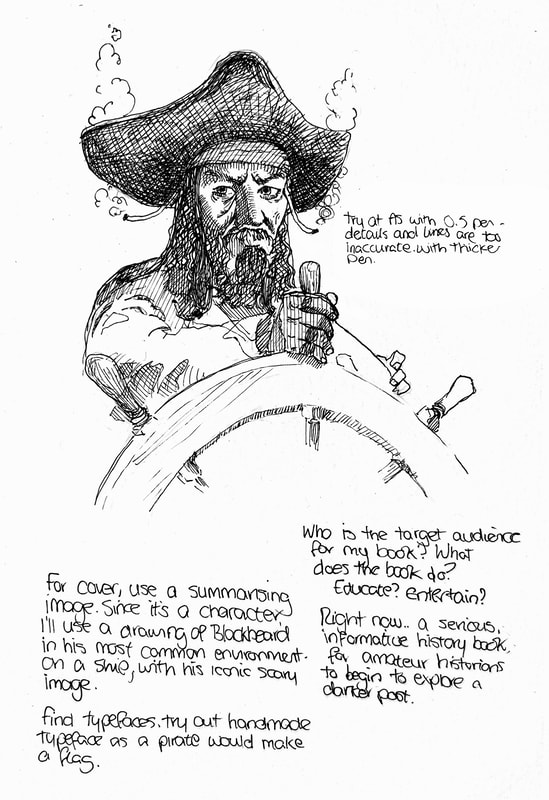 try at A5 with 0.5 pen -
details and lines are too
inaccurate. with thicker
pen.
Who is the target audience
for my book? What
does the book do?
Educate? Entertain?
Right now.. a serious,
informative history book
for amateur historians
to begin to explore a
darker past.
For cover, use a summarising
image. Since it's a character,
I'll use a drawing of Blackbeard
in his most common environment.
On a ship, with his iconic scary
image.
find typefaces. try out handmade
typeface as a pirate would make
a flag.